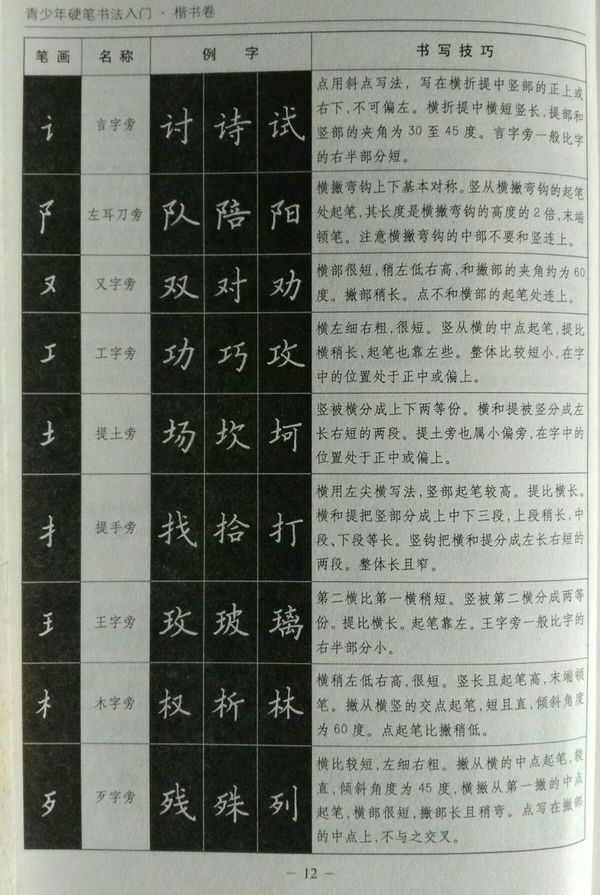 青少年硬笔书法入门·楷书卷
笔画 名称 例字 书写技巧
讠 言字旁 讨 诗 试
点用斜点写法，写在横折提中竖部的正上或
右下，不可偏左。横折提中横短竖长，提部和
竖部的夹角为 30 至 45 度。言字旁一般比字
的右半部分短。
阝 左耳刀旁 队 陪 阳
横撇弯钩上下基本对称。竖从横撇弯钩的起笔
处起笔，其长度是横撇弯钩的高度的 2 倍，末端
顿笔。注意横撇弯钩的中部不要和竖连上。
又 又字旁 双 对 劝
横部很短，稍左低右高，和撇部的夹角约为 60
度。撇部稍长。点不和横部的起笔处连上。
工 工字旁 功 巧 攻
横左细右粗，很短。竖从横的中点起笔，提比
横稍长，起笔也靠左些。整体比较短小，在字
中的位置处于正中或偏上。
土 提土旁 场 坎 坷
竖被横分成上下两等份。横和提被竖分成左
长右短的两段。提土旁也属小偏旁，在字中的
位置处于正中或偏上。
扌 提手旁 找 拾 打
横用左尖横写法，竖部起笔较高。提比横长。
横和提把竖部分成上中下三段，上段稍长，中
段、下段等长。竖钩把横和提分成左长右短的
两段。整体长且窄。
王 王字旁 玫 玻 璃
第二横比第一横稍短。竖被第二横分成两等
份。提比横长。起笔靠左。王字旁一般比字的
右半部分小。
木 木字旁 权 析 林
横稍左低右高，很短。竖长且起笔高，末端顿
笔。撇从横竖的交点起笔，短且直，倾斜角度
为 60 度。点起笔比撇稍低。
歹 歹字旁 残 殊 列
横比较短，左细右粗。撇从横的中点起笔，较
直，倾斜角度为 45 度，横撇从第一撇的中点
起笔，横部很短，撇部长且稍弯。点写在撇部
的中点上，不与之交叉。
— 12 —